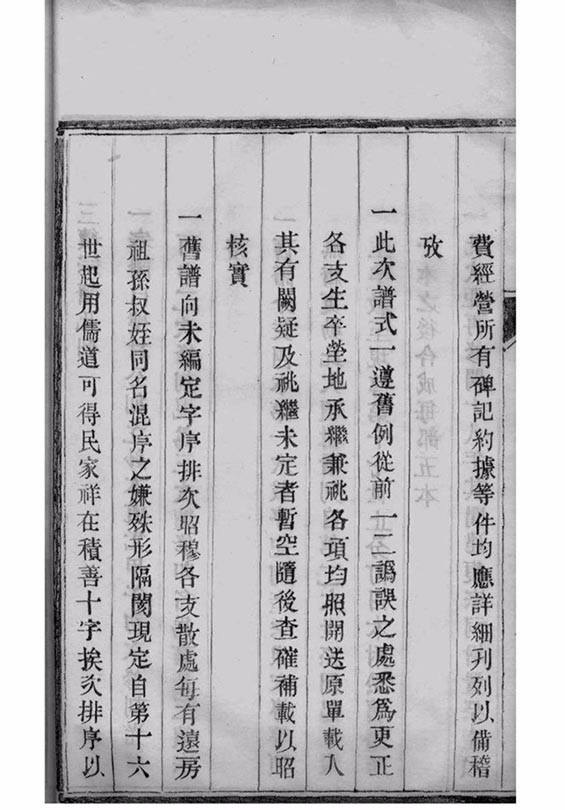 費經營所有碑記約據等件均應詳細刊列以備稽
攷
一此次譜式一遵舊例從前一二譌誤之處悉爲更正
各支生卒塋地承繼兼祧各項均照開送原單載入
其有闕疑及祧繼未定者暫空隨後查確補載以昭
核實
一舊譜向未編定字序排次昭穆各支散處每有遠房
祖孫叔姪同名混序之嫌殊形隔閡現定自第十六
世起用儒道可得民家祥在積善十字挨次排序以